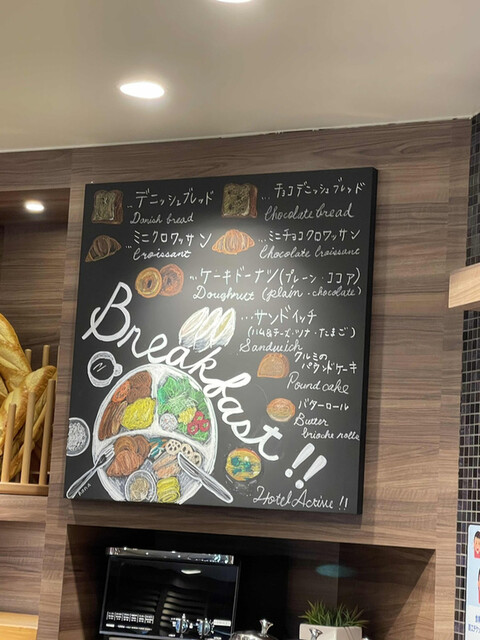 …デニッシュブレッド
Danish bread
…チョコデニッシュブレッド
Chocolate bread
…ミニクロワッサン
Croissant
…ミニチョコクロワッサン
Chocolate Croissant
…ケーキドーナツ(プレーン・ココア)
Doughnut (plain・chocolate)
…サンドイッチ
(ハム&チーズ・ツナ・たまご)
Sandwich
クルミの
パウンドケーキ
Pound cake
バターロール
Butter
brioche rolle
Breakfast!!
Hotel Active!!